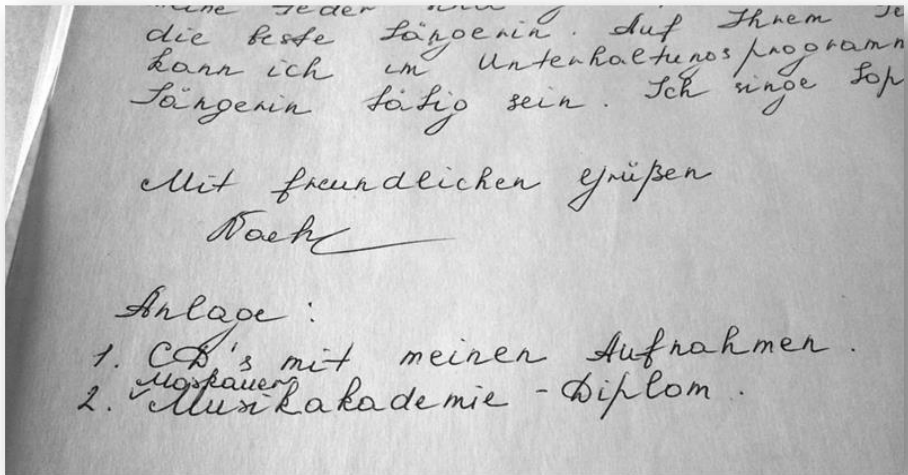 die beste Sängerin. Auf Ihrem
kann ich im Unterhaltungsprogramm
Sängerin tätig sein. Ich singe Sop
Mit freundlichen Grüßen
Anlage:
1. CD's mit meinen Aufnahmen.
Moskauer
2. Musikakademie - Diplom.